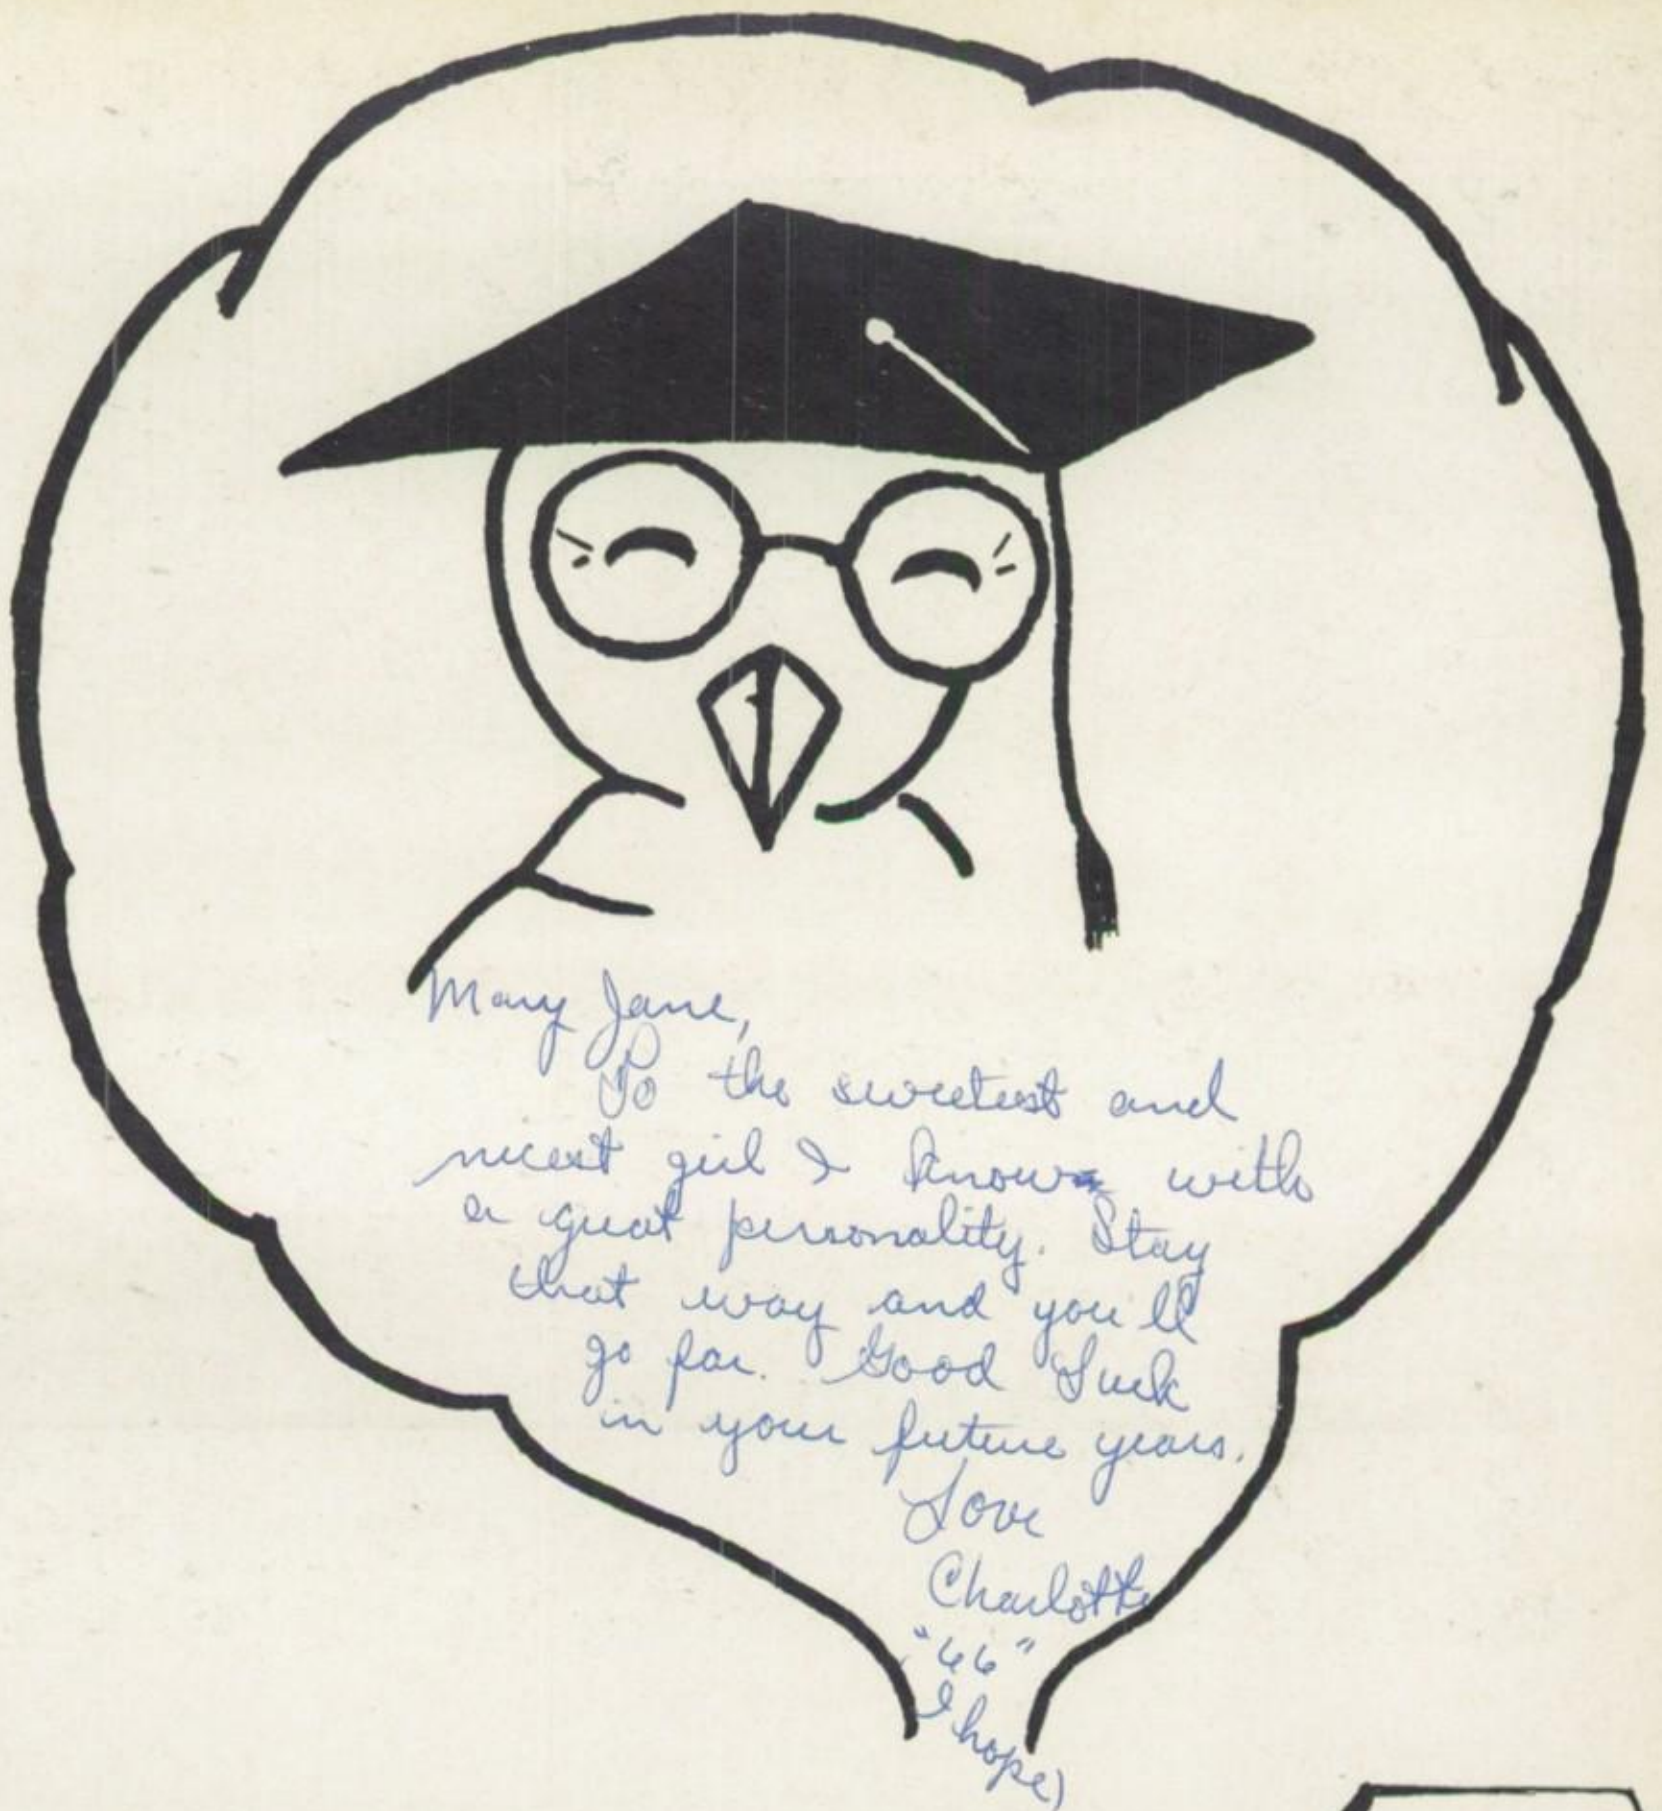 Mary Jane,
To the sweetest and
nicest girl I know with
a great personality. Stay
that way and you'll
go far. Good Luck
in your future years.
Love
Charlotte
"66"
I hope)